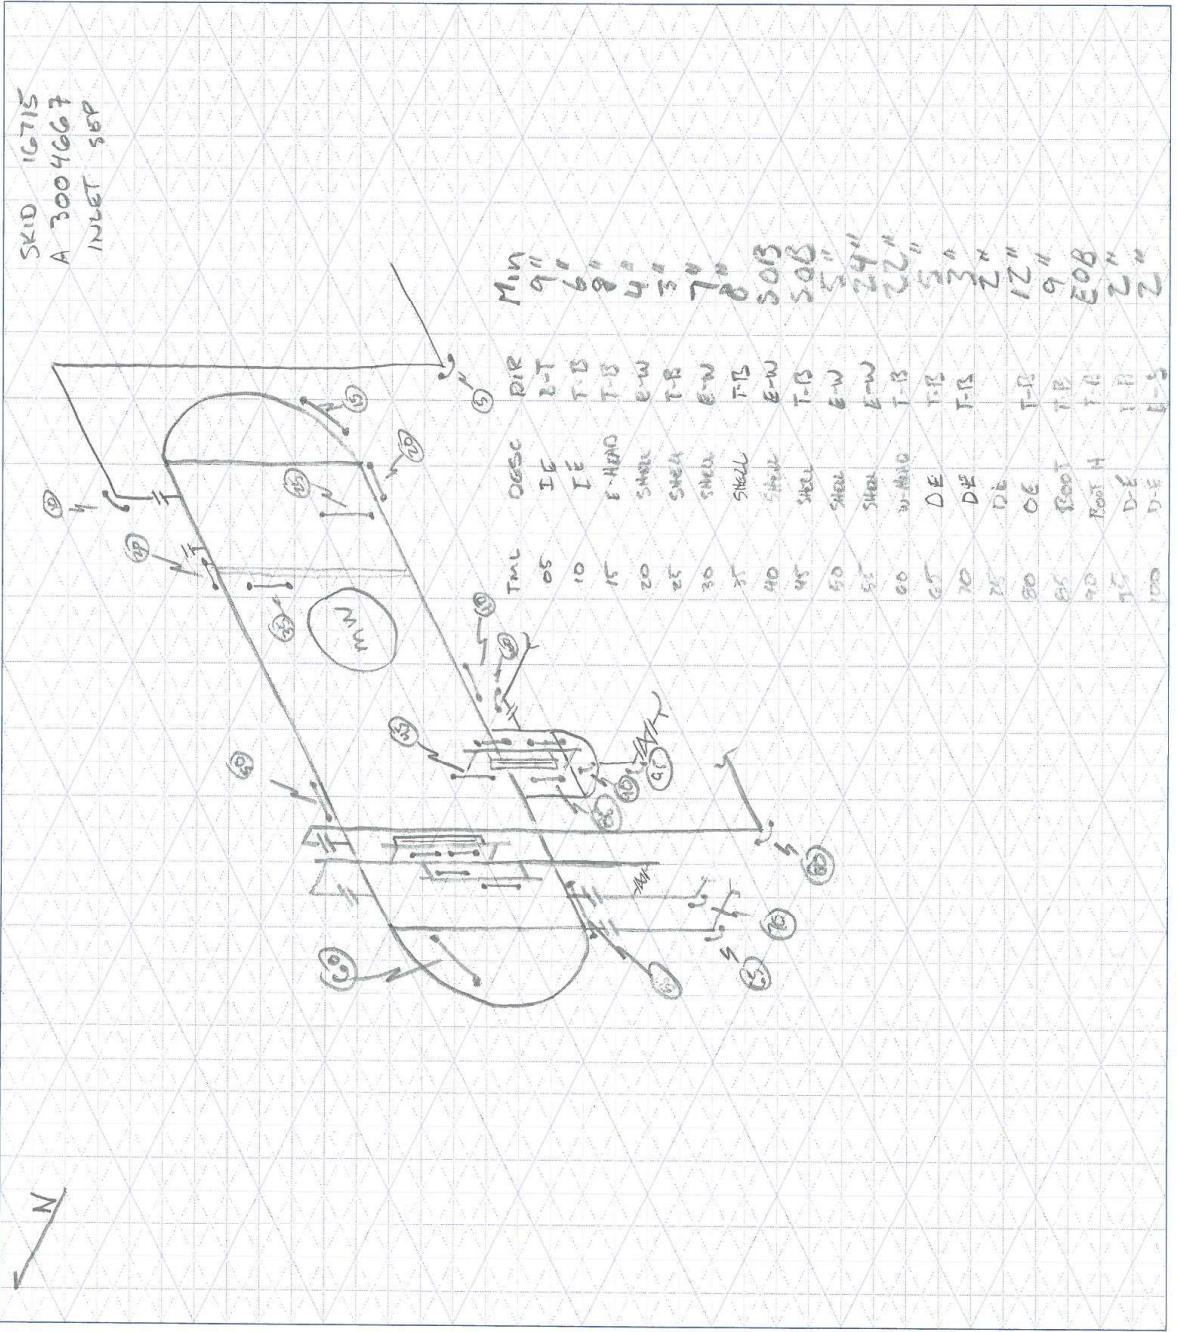 SKID 16715
A 3004667
INLET SEP
N
MW
TML DESC DIR Min
05 IE 2-T 9"
10 IE T-B 6"
15 E-HEAD T-B 8"
20 SHELL E-W 4"
25 SHELL T-B 3"
30 SHELL E-W 7"
35 SHELL T-B 8"
40 SHELL E-W SOB
45 SHELL T-B SOB
50 SHELL E-W 5"
55 SHELL E-W 24"
60 W-HEAD T-B 22"
65 DE T-B 5"
70 DE T-B 3"
75 DE 2"
80 OE T-B 12"
85 BOOT T-B 9"
90 BOOT H T-B EOB
95 D-E T-B 2"
100 D-E 2"
10
15
5
20
25
60
80
70
65
90
95